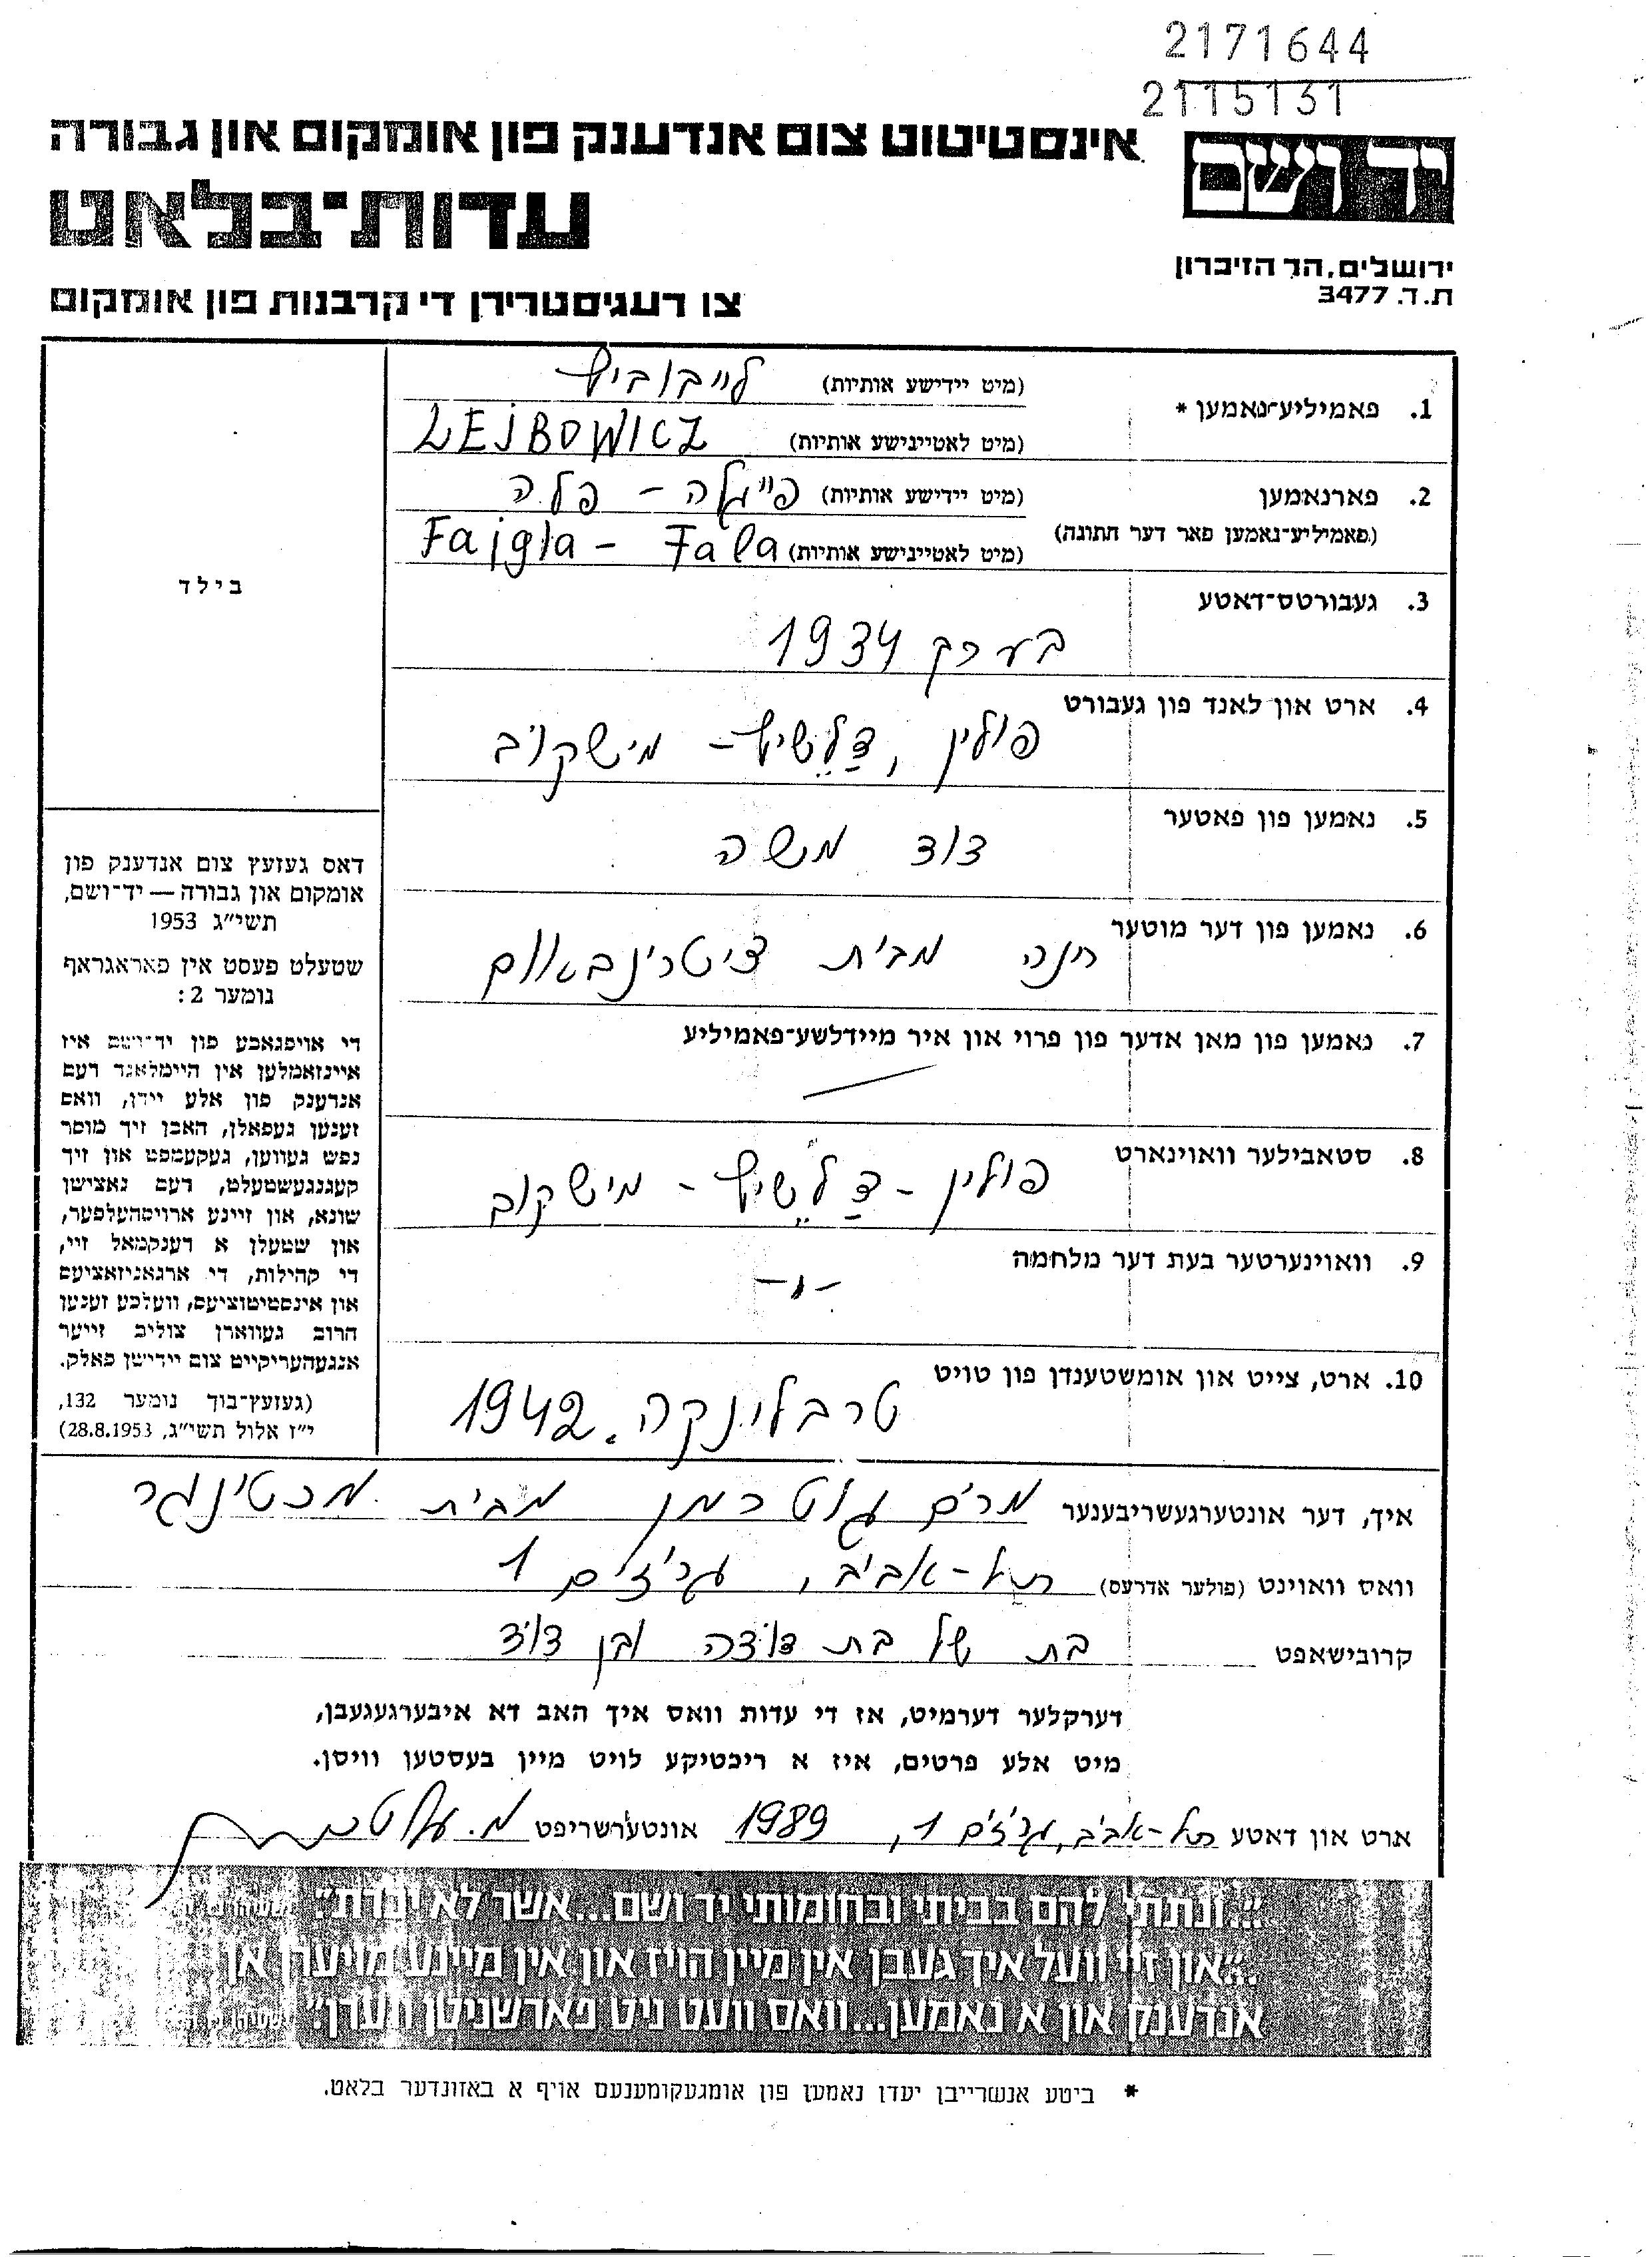 2171644
2115131
יד ושם
אינסטיטוט צום אנדענק פון אומקום און גבורה
עדות־בלאט
ירושלים, הר הזיכרון
ת.ד. 3477
צו רעגיסטרירן די קרבנות פון אומקום
1. פאמיליע־נאמען * (מיט יידישע אותיות) לייבוביץ
(מיט לאטיינישע אותיות) LEJBOWICZ
2. פארנאמען (מיט יידישע אותיות) פייגלה - פלה
(פאמיליע־נאמען פאר דער חתונה) (מיט לאטיינישע אותיות) Fajgla - Fala
בילד
3. געבורטס־דאטע
בערך 1934
4. ארט און לאנד פון געבורט
פולין, דַלֵשיץ - מישקוב
5. נאמען פון פאטער
דוד משה
6. נאמען פון דער מוטער
חנה מבית ציטרינבאום
7. נאמען פון מאן אדער פון פרוי און איר מיידלשע־פאמיליע
8. סטאבילער וואוינארט
פולין - דַלֵשיץ - מישקוב
9. וואוינערטער בעת דער מלחמה
-"-
10. ארט, צייט און אומשטענדן פון טויט
טרבלינקה. 1942
דאס געזעץ צום אנדענק פון
אומקום און גבורה — יד־ושם,
תשי"ג 1953
שטעלט פעסט אין פאראגראף
נומער 2:
די אויפגאבע פון יד־ושם איז
איינזאמלען אין היימלאנד דעם
אנדענק פון אלע יידן, וואס
זענען געפאלן, האבן זיך מוסר
נפש געווען, געקעמפט און זיך
קעגנגעשטעלט, דעם נאצישן
שונא, און זיינע ארויסהעלפער,
און שטעלן א דענקמאל זיי,
די קהילות, די ארגאניזאציעס
און אינסטיטוציעס, וועלכע זענען
חרוב געווארן צוליב זייער
אנגעהעריקייט צום יידישן פאלק.
(געזעץ־בוך נומער 132,
י"ז אלול תשי"ג, 28.8.1953)
איך, דער אונטערגעשריבענער מרים גוטרמן מבית
וואס וואוינט (פולער אדרעס) תל-אביב, גריזים 1
קרובישאפט בת של בת דודה ובן דוד
דערקלער דערמיט, אז די עדות וואס איך האב דא איבערגעגעבן,
מיט אלע פרטים, איז א ריכטיקע לויט מיין בעסטען וויסן.
ארט און דאטע תל-אביב, גריזים 1, 1989 אונטערשריפט מ.
"...ונתתי להם בביתי ובחומותי יד ושם...אשר לא יכרת".
"...און זיי וועל איך געבן אין מיין הויז און אין מיינע מויערן אן
אנדענק און א נאמען...וואס וועט ניט פארשניטן ווערן".
* ביטע אנשרייבן יעדן נאמען פון אומגעקומענעם אויף א באזונדער בלאט.